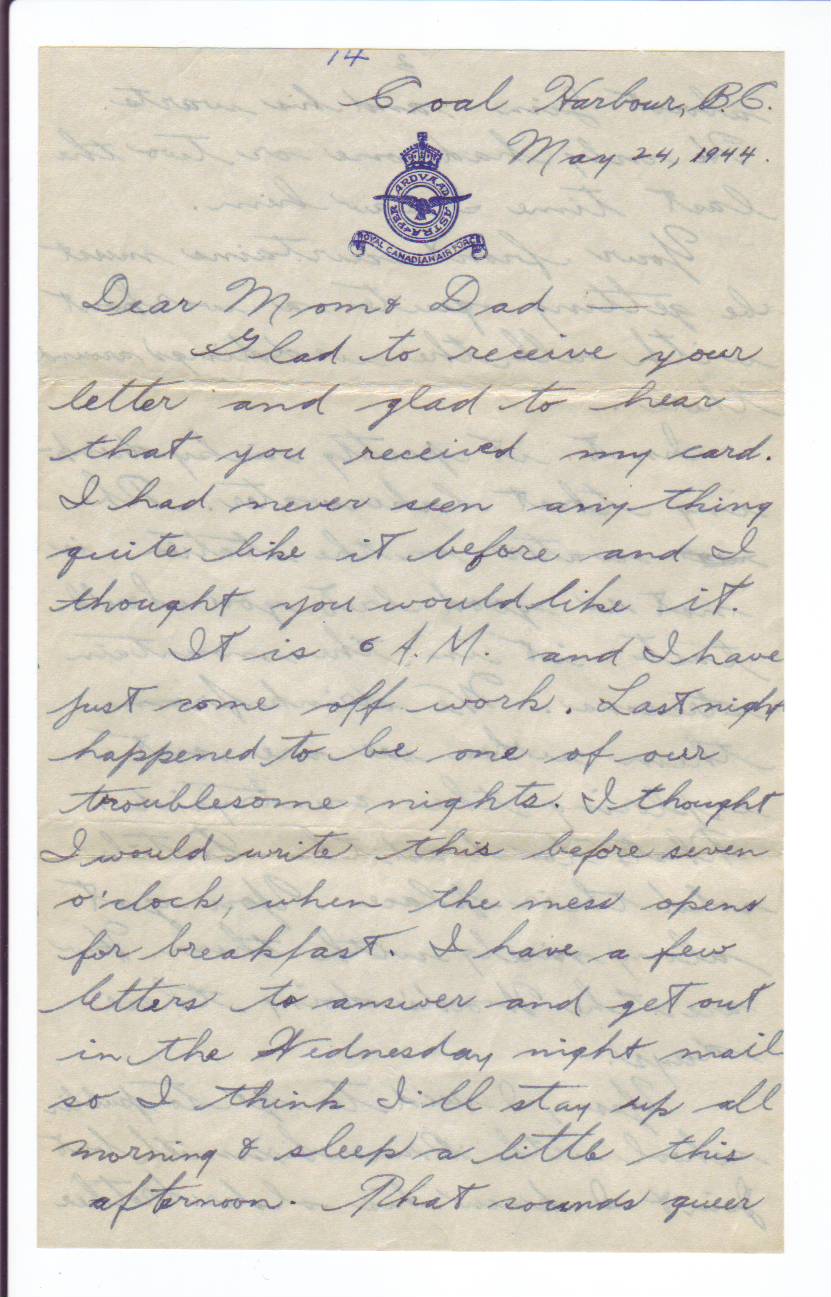 14
Coal Harbour, B.C.
May 24, 1944.
PER ARDVA AD ASTRA
ROYAL CANADIAN AIR FORCE
Dear Mom & Dad —
Glad to receive your
letter and glad to hear
that you received my card.
I had never seen anything
quite like it before and I
thought you would like it.
It is 6 A.M. and I have
just come off work. Last night
happened to be one of our
troublesome nights. I thought
I would write this before seven
o'clock, when the mess opens
for breakfast. I have a few
letters to answer and get out
in the Wednesday night mail
so I think I'll stay up all
morning & sleep a little this
afternoon. That sounds queer